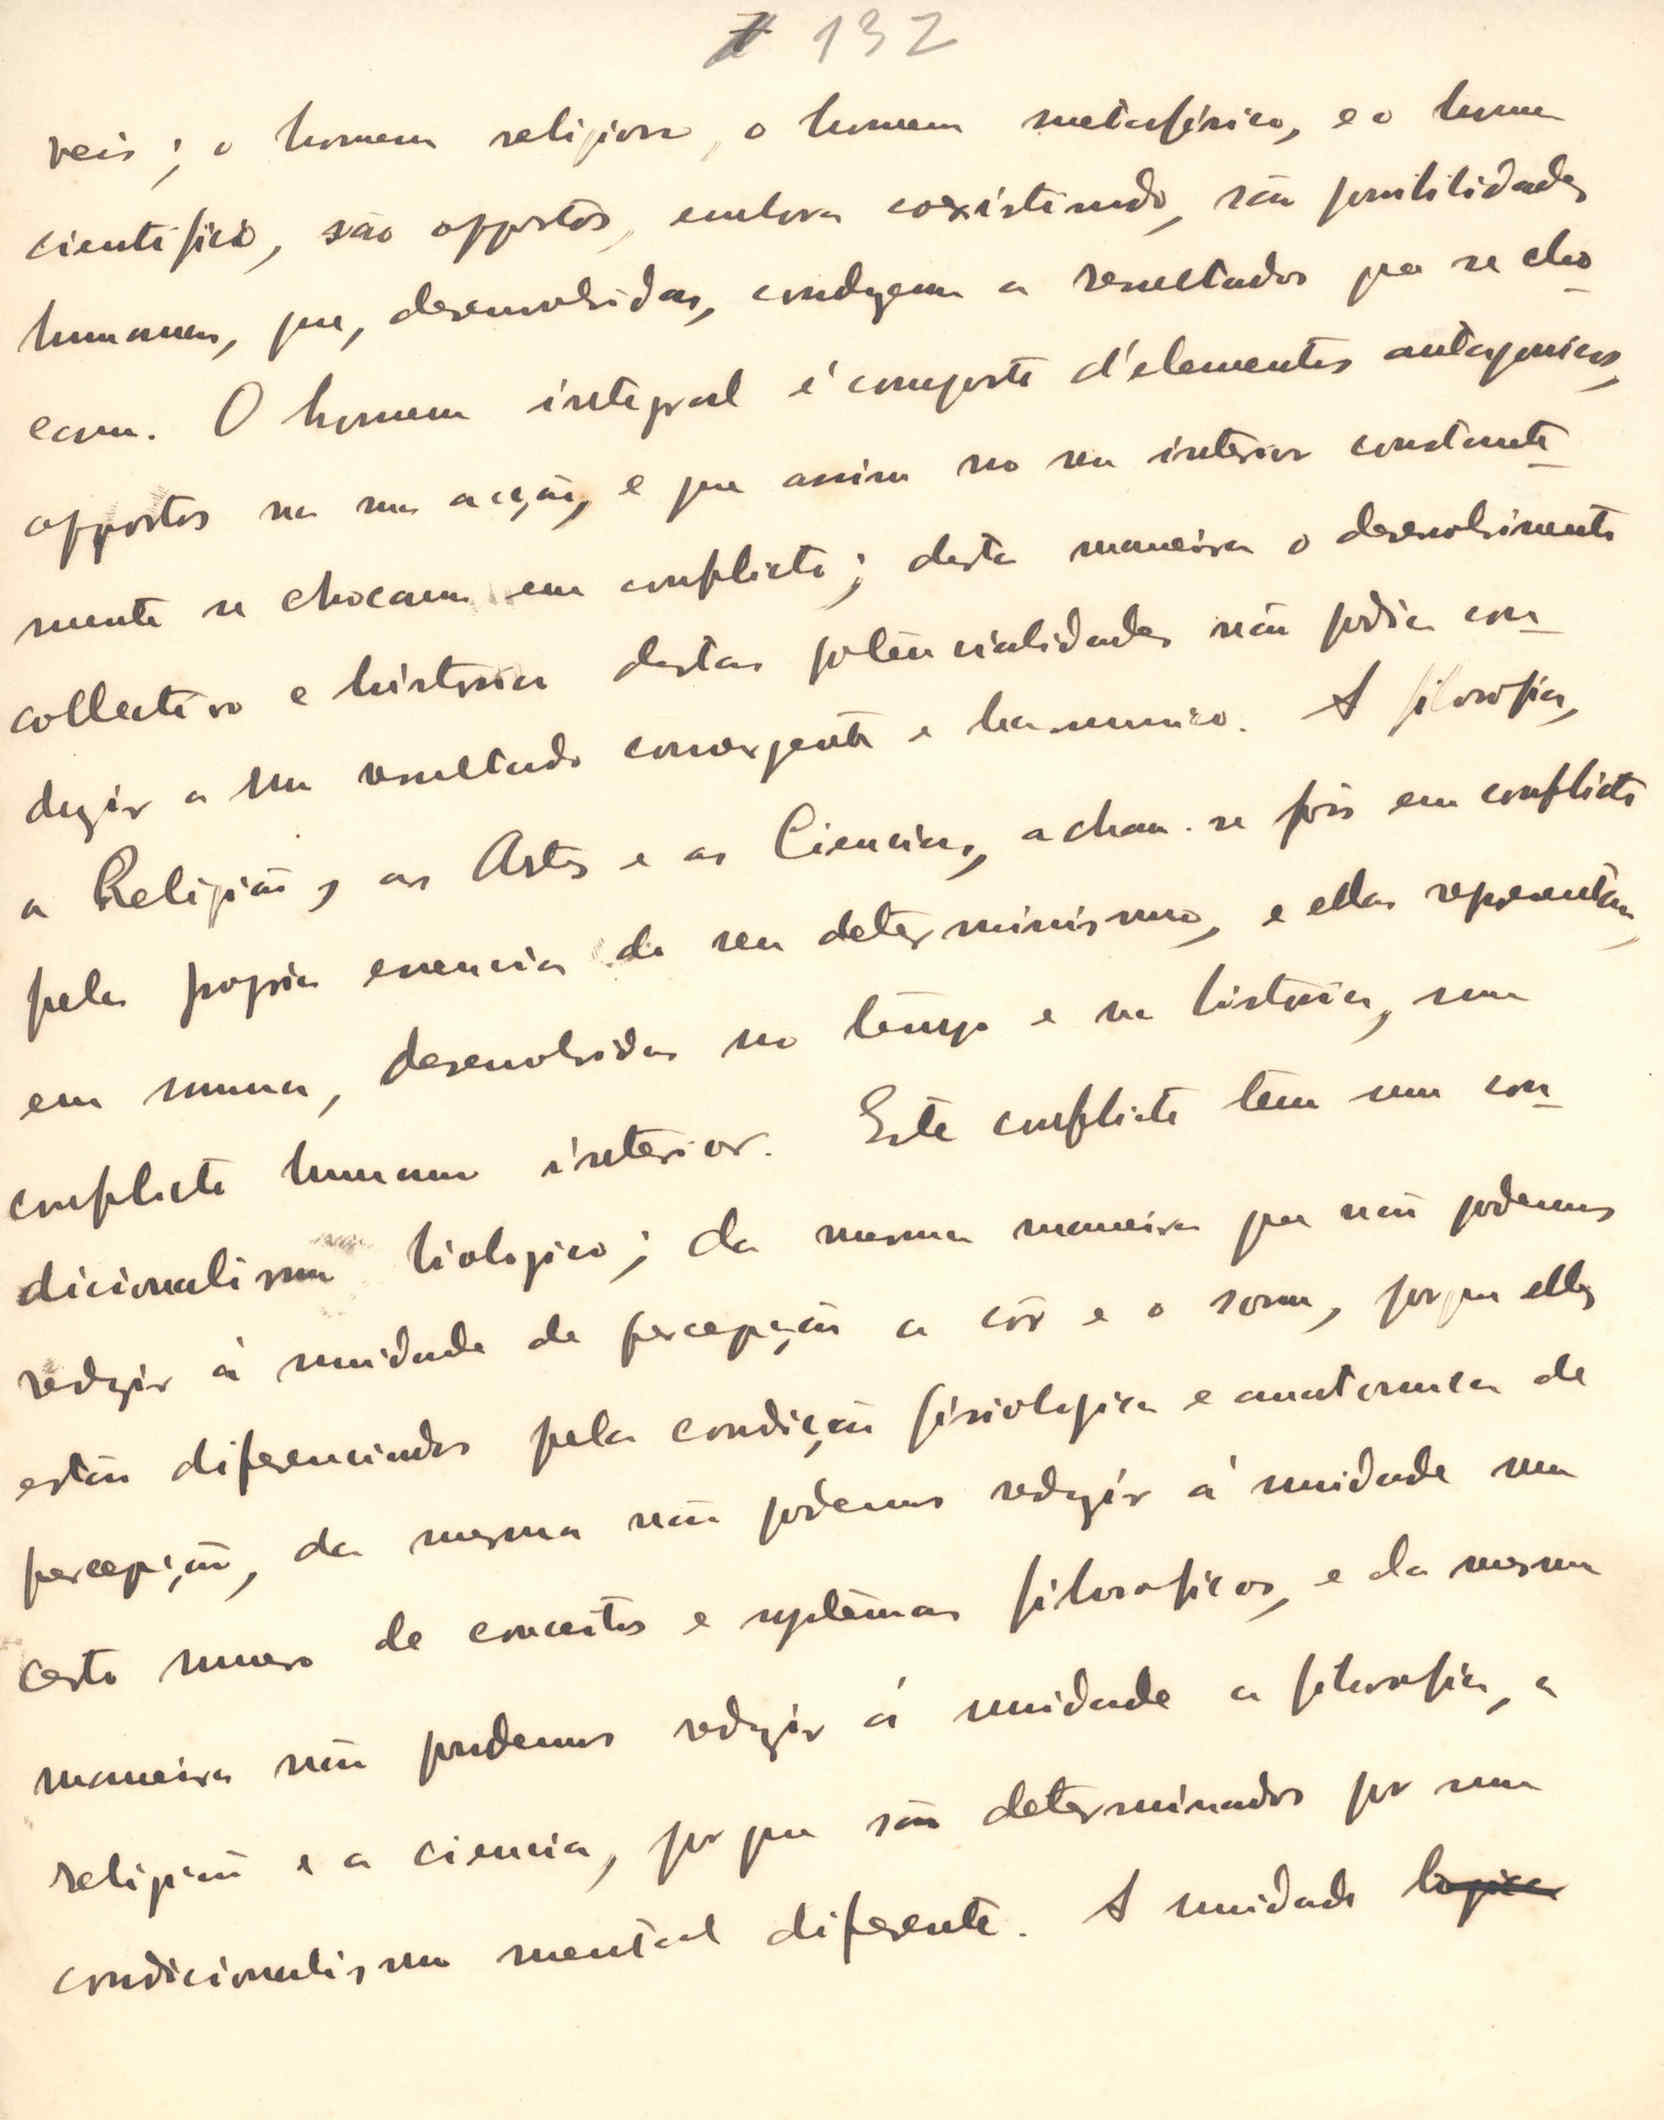 132
veis; o homem religioso, o homem metafisico, e o homem
cientifico, são oppostos, embora coexistindo, são possibilidades
humanas, que, desenvolvidas, conduzem a resultados que se cho-
cam. O homem integral é composto d'elementos antagonicos,
oppostos na sua acção, e que assim no seu interior constante-
mente se chocam em conflicto; desta maneira o desenvolvimento
collectivo e historico destas potencialidades não podia con-
duzir a um resultado convergente e harmonico. A filosofia,
a Religião, as Artes e as Ciencias, acham-se pois em conflicto
pela propria essencia do seu determinismo, e ellas representam,
em summa, desenvolvidas no tempo e na historia, um
conflicto humano interior. Este conflicto tem um con-
dicionalismo biologico; da mesma maneira que não podemos
reduzir á unidade de percepção a côr e o som, porque elles
estão diferenciados pela condição fisiologica e anatomica de
percepção, da mesma não podemos reduzir á unidade um
certo numero de conceitos e systemas filosoficos, e da mesma
maneira não podemos reduzir á unidade a filosofia, a
religião e a ciencia, por que são determinados por um
condicionalismo mental diferente. A unidade logica